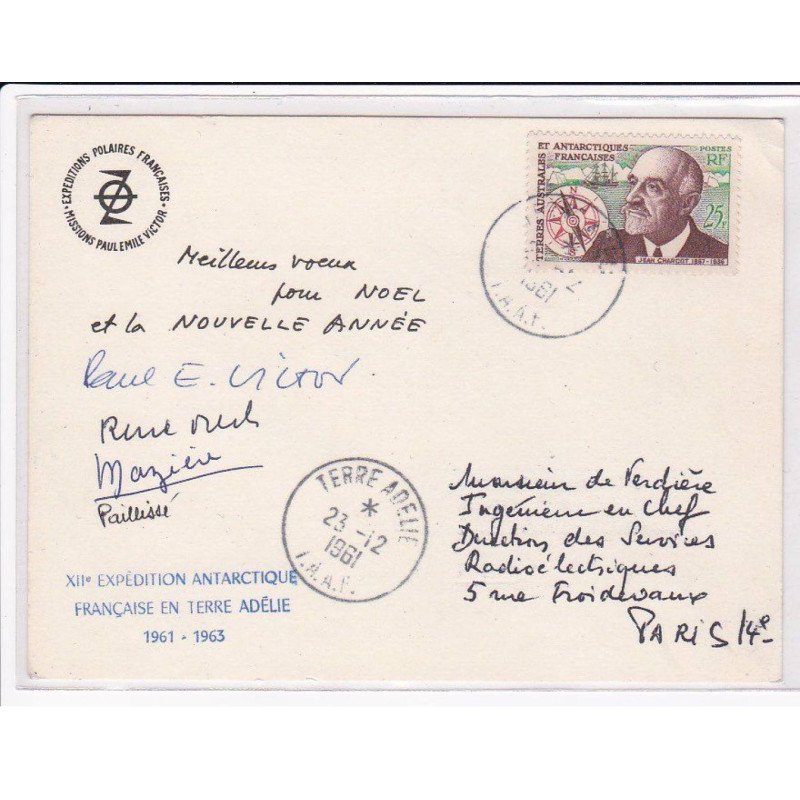 EXPEDITIONS POLAIRES FRANÇAISES
MISSIONS PAUL EMILE VICTOR
TERRES AUSTRALES
ET ANTARCTIQUES
FRANÇAISES
POSTES
RF
25F
JEAN CHARCOT 1867-1936
1961
T.A.A.F.
Meilleurs voeux
pour NOEL
et la NOUVELLE ANNÉE
Paul E. VICTOR
René
Mazière
Paillissé
TERRE ADELIE
23-12
1961
T.A.A.F.
XIIe EXPÉDITION ANTARCTIQUE
FRANÇAISE EN TERRE ADÉLIE
1961 - 1963
Monsieur de Verdière
Ingénieur en Chef
Direction des Services
Radioélectriques
5 rue Froidevaux
PARIS 14e